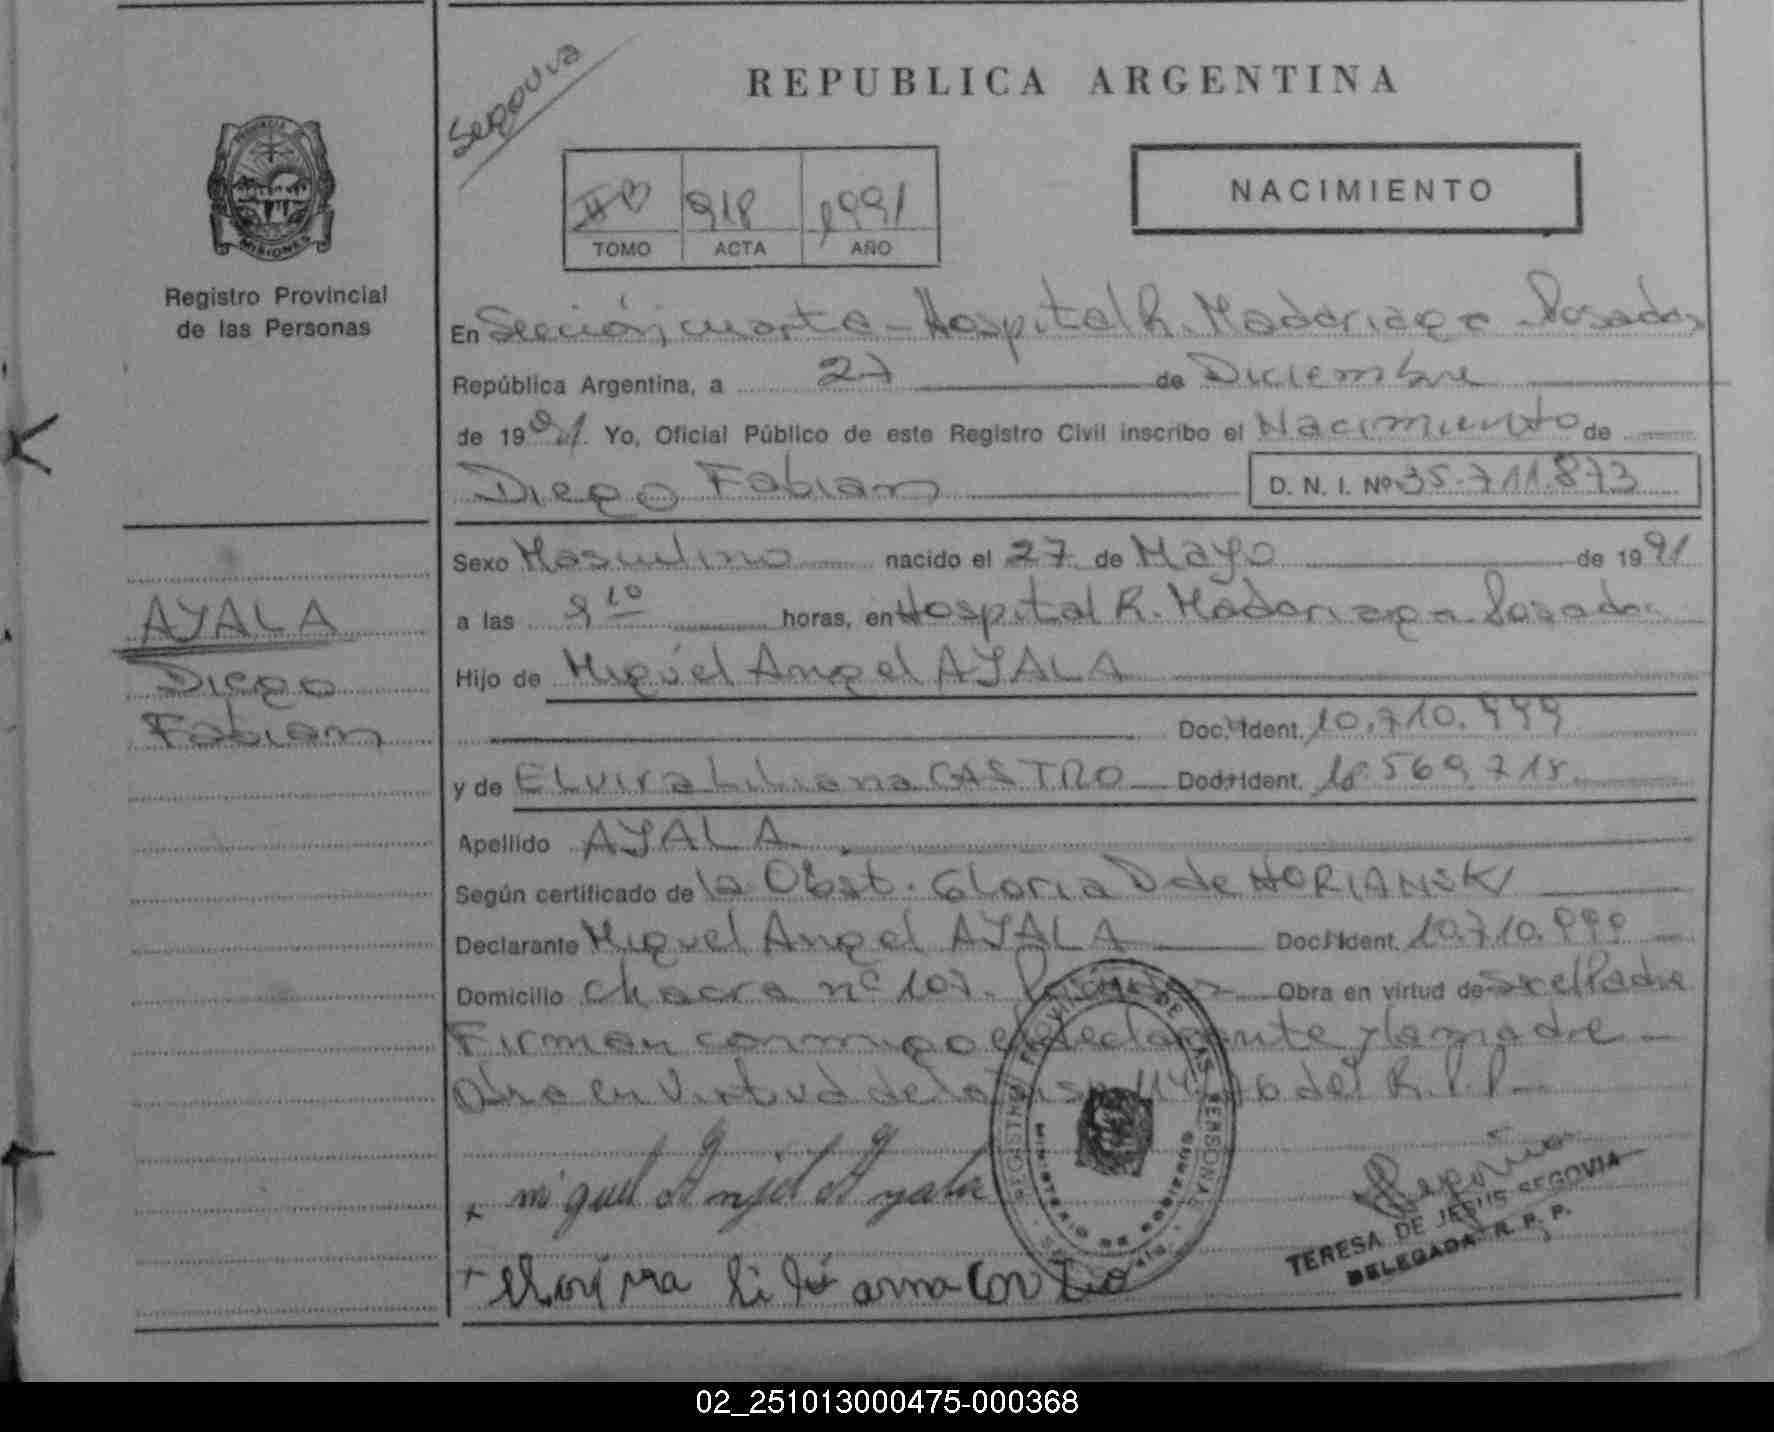 Segovia
REPUBLICA ARGENTINA
918 1991
TOMO ACTA AÑO
NACIMIENTO
PROVINCIA
MISIONES
Registro Provincial
de las Personas
En Sección cuarta - Hospital R. Madariaga - Posadas
República Argentina, a 27 de Diciembre
de 1991. Yo, Oficial Público de este Registro Civil inscribo el Nacimiento de
Diego Fabian D. N. I. Nº 35.711.873
AYALA
Diego
Fabian
Sexo Masculino nacido el 27 de Mayo de 1991
a las 9 10 horas, en Hospital R. Madariaga - Posadas
Hijo de Miguel Angel AYALA
Doc. Ident. 10.710.999
y de ELvira Liliana CASTRO Doc. Ident. 18.569.718
Apellido AYALA
Según certificado de la Obst. Gloria D de HORIANSKI
Declarante Miguel Angel AYALA Doc. Ident. 10.710.999
Domicilio Chacra nº 107. Posadas Obra en virtud de ser el Padre
Firman conmigo el declarante y la madre -
Obra en Virtud de la Disp. del R.P.P. -
+ miguel Anjel Ayala
+ Elvira Liliana Castro
REGISTRO PROVINCIAL DE LAS PERSONAS
MINISTERIO DE GOBIERNO
Segovia
TERESA DE JESUS SEGOVIA
DELEGADA R. P. P.
02_251013000475-000368